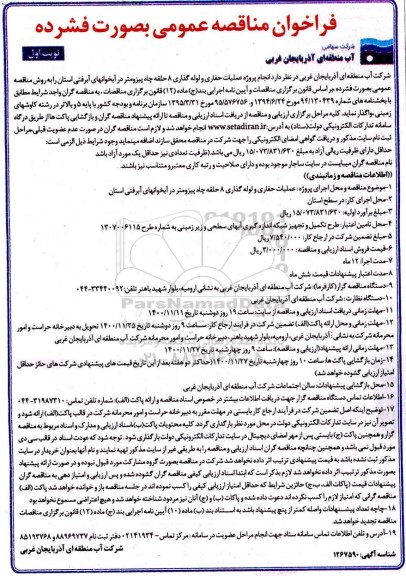 فراخوان مناقصه عمومی بصورت فشرده
نوبت اول
شرکت سهامی
آب منطقه‌ای آذربایجان غربی
شرکت آب منطقه ای آذربایجان غربی در نظر دارد انجام پروژه عملیات حفاری و لوله گذاری ۸ حلقه چاه پیزومتر در آبخوانهای آبرفتی استان را به روش مناقصه
عمومی بصورت فشرده بر اساس قانون برگزاری مناقصات و آیین نامه اجرایی بند(ج) ماده (۱۲) قانون برگزاری مناقصات، به مناقصه گران واجد شرایط مطابق
با بخشنامه های شماره ۹۴/۱۳۰۴۳۹ مورخ ۱۳۹۴/۶/۲۴ و ۹۵/۵۷۶۷۵۶ مورخ ۱۳۹۵/۳/۳۱ سازمان برنامه و بودجه کشور با پایه ۵ و بالاتر در رشته کاوشهای
زمینی واگذار نماید. کلیه مراحل برگزاری ارزیابی و مناقصه از دریافت اسناد ارزیابی و مناقصه تا ارائه پیشنهاد مناقصه گران و بازگشایی پاکت ها از طریق درگاه
سامانه تدارکات الکترونیکی دولت(ستاد) به آدرس: www.setadiran.ir انجام خواهد شد و لازم است مناقصه گران در صورت عدم عضویت قبلی، مراحل
ثبت نام سایت مذکور و دریافت گواهی امضای الکترونیکی را جهت شرکت در مناقصه محقق سازند اضافه مینماید وجود شرایط ذیل الزامی است:
حداقل دارای ظرفیت ریالی آزاد به مبلغ ۱۵/۰۷۳/۸۳۱/۶۳۰ ریال می باشد.(ظرفیت تعدادی نیز حداقل یک مورد آزاد باشد
نام مناقصه گران میبایست در سایت ساجار موجود بوده و دارای صلاحیت و رتبه کاری معتبر و متناسب نیز باشند.
((اطلاعات مناقصه و زمانبندی))
۱-موضوع مناقصه و محل اجرای پروژه: عملیات حفاری و لوله گذاری ۸ حلقه چاه پیزومتر در آبخوانهای آبرفتی استان
۲-محل اجرای کار: در سطح استان
۳-مبلغ برآورد اولیه: ۱۵/۰۷۳/۸۳۱/۶۳۰ ریال
۴-محل تامین اعتبار: طرح تکمیل و تجهیز شبکه اندازه گیری آبهای سطحی و زیر زمینی به شماره طرح ۱۳۰۷۰۰۶۱۱۵
۵-مبلغ تضمین شرکت در ارجاع کار:
۶-قیمت فروش اسناد ارزیابی و مناقصه: ۲/۰۰۰/۰۰۰ ریال
۷-مدت اجرا: ۱۲ ماه
۸-مدت اعتبار پیشنهادات قیمت: شش ماه
۹-دستگاه مناقصه گزار(کارفرما): شرکت آب منطقه ای آذربایجان غربی به نشانی ارومیه، بلوار شهید باهنر تلفن: ۳۳۴۴۰۰۹۲-۰۴۴
۱۰-دستگاه نظارت: شرکت آب منطقه ای آذربایجان غربی
۱۱-مهلت زمانی دریافت اسناد ارزیابی و مناقصه از سایت: ساعت ۱۹ روز دوشنبه تاریخ ۱۴۰۰/۱۱/۱۱
۱۲-مهلت زمانی و محل ارائه پاکت(الف) تضمین شرکت در فرآیند ارجاع کار: ساعت ۹ روز دوشنبه تاریخ ۱۴۰۰/۱۱/۲۵ تحویل به دبیرخانه حراست و امور
محرمانه شرکت به نشانی: آذربایجان غربی، ارومیه، بلوار شهید باهنر، دبیرخانه حراست و امور محرمانه شرکت آب منطقه ای آذربایجان غربی
۱۳-مهلت زمانی ارائه پیشنهاد(ارزیابی و مناقصه): ساعت ۹ روز چهارشنبه تاریخ ۱۴۰۰/۱۱/۲۷
۱۴-زمان بازگشایی پاکت ها: ساعت ۱۰ روز چهارشنبه تاریخ ۱۴۰۰/۱۱/۲۷(حداکثر دو هفته بعد از این تاریخ قیمت های پیشنهادی شرکت های حائز حداقل
امتیاز ارزیابی گشوده خواهد شد)
۱۵-محل بازگشایی پیشنهادات: سالن اجتماعات شرکت آب منطقه ای آذربایجان غربی
۱۶-اطلاعات تماس دستگاه مناقصه گزار جهت دریافت اطلاعات بیشتر در خصوص اسناد مناقصه و ارائه پاکت(الف): شماره تلفن تماس: ۳۱۹۸۷۳۱۰-۰۴۴
۱۷-توضیح اینکه اصل تضمین شرکت در فرآیند ارجاع کار بایستی در مهلت مقرر به دبیرخانه حراست و امور محرمانه شرکت در قالب پاکت(الف) ارائه شود و
تصویر آن نیز در سایت تدارکات الکترونیکی دولت در محل مورد نظر بارگذاری گردد. کلیه محتویات پاکت(ب)،اسناد ارزیابی و مدارک و اسناد مربوط به مناقصه
گزار و همچنین پاکت (ج) بایستی پس از مهر امضای دیجیتال در سایت تدارکات الکترونیکی دولت بارگذاری شود . توجه شود که عودت اسناد در قالب سی دی
مورد قبول نمی باشد و همچنین چنانچه مناقصه گران اسناد ارزیابی و مناقصه را به طریقی غیر از سایت مذکور تهیه نمایند و نام آنها بعنوان خریدار در سایت
مذکور ثبت نشده باشد به قیمت پیشنهادی ترتیب اثر داده نخواهد شد شرکت در مناقصه بصورت گروه مشارکت مورد قبول نبوده و در صورت ارائه پیشنهاد
بصورت مذکور ترتیب اثر داده نخواهد شد لازم بذکر است که ابتدا اسناد ارزیابی کیفی مناقصه گران گشوده شده و پس ارزیابی و امتیاز دهی به مناقصه گران
پیشنهادات قیمت (پاکات الف،ب،ج) حائزین شرایط که حداقل امتیاز ارزیابی کیفی را کسب نموده اند در جلسه مناقصه باز و خوانده خواهد شد پاکت (الف)
مناقصه گرانی که امتیاز لازم را کسب نکرده اند دعوت داده شده و پاکات (ب) و (ج) آنان نیز مردود شناخته خواهد شد و هیچ اعتراضی مسموع نخواهد بود
۱۸-چاچه تعداد پیشنهادات واصله کمتر از پنج پیشنهاد باشد به استناد بند (ب) ماده (۱۰) آیین نامه اجرایی بند (ج) ماده (۱۲) قانون برگزاری مناقصات
مناقصه تجدید خواهد شد.
۱۹-آدرس و تلفن اطلاعات تماس سامانه ستاد جهت انجام مراحل عضویت در سامانه: مرکز تماس-۰۲۱۴۱۹۳۴ دفتر ثبت نام ۸۸۹۶۹۷۳۷ و ۸۵۱۹۳۷۶۸
شناسه آگهی: ۱۲۶۷۵۹۰
شرکت آب منطقه ای آذربایجان غربی